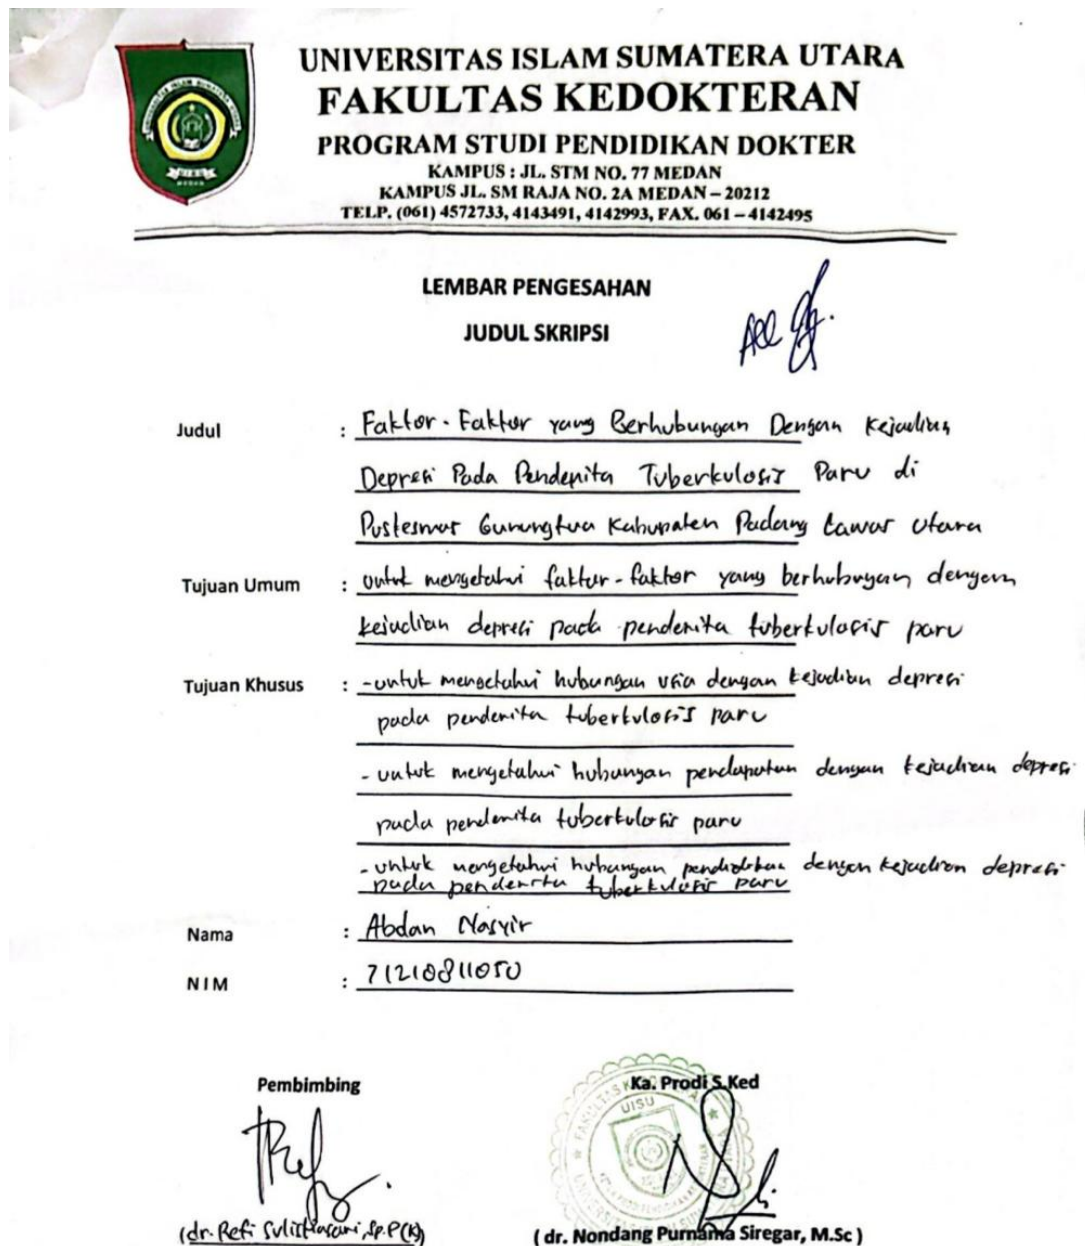 UNIVERSITAS ISLAM SUMATERA UTARA
FAKULTAS KEDOKTERAN
PROGRAM STUDI PENDIDIKAN DOKTER
KAMPUS : JL. STM NO. 77 MEDAN
KAMPUS JL. SM RAJA NO. 2A MEDAN – 20212
TELP. (061) 4572733, 4143491, 4142993, FAX. 061 – 4142495
LEMBAR PENGESAHAN
JUDUL SKRIPSI
Acc
Judul : Faktor-Faktor yang Berhubungan Dengan Kejadian
Depresi Pada Penderita Tuberkulosis Paru di
Puskesmas Gunungtua Kabupaten Padang Lawas Utara
Tujuan Umum : untuk mengetahui faktor-faktor yang berhubungan dengan
kejadian depresi pada penderita tuberkulosis paru
Tujuan Khusus : -untuk mengetahui hubungan usia dengan kejadian depresi
pada penderita tuberkulosis paru
- untuk mengetahui hubungan pendapatan dengan kejadian depresi
pada penderita tuberkulosis paru
- untuk mengetahui hubungan pendidikan dengan kejadian depresi
pada penderita tuberkulosis paru
Nama : Abdan Nasyir
NIM : 71210811050
Pembimbing
Ka. Prodi S.Ked
UISU
(dr. Refi Sulistiasari, Sp.P(K))
( dr. Nondang Purnama Siregar, M.Sc )